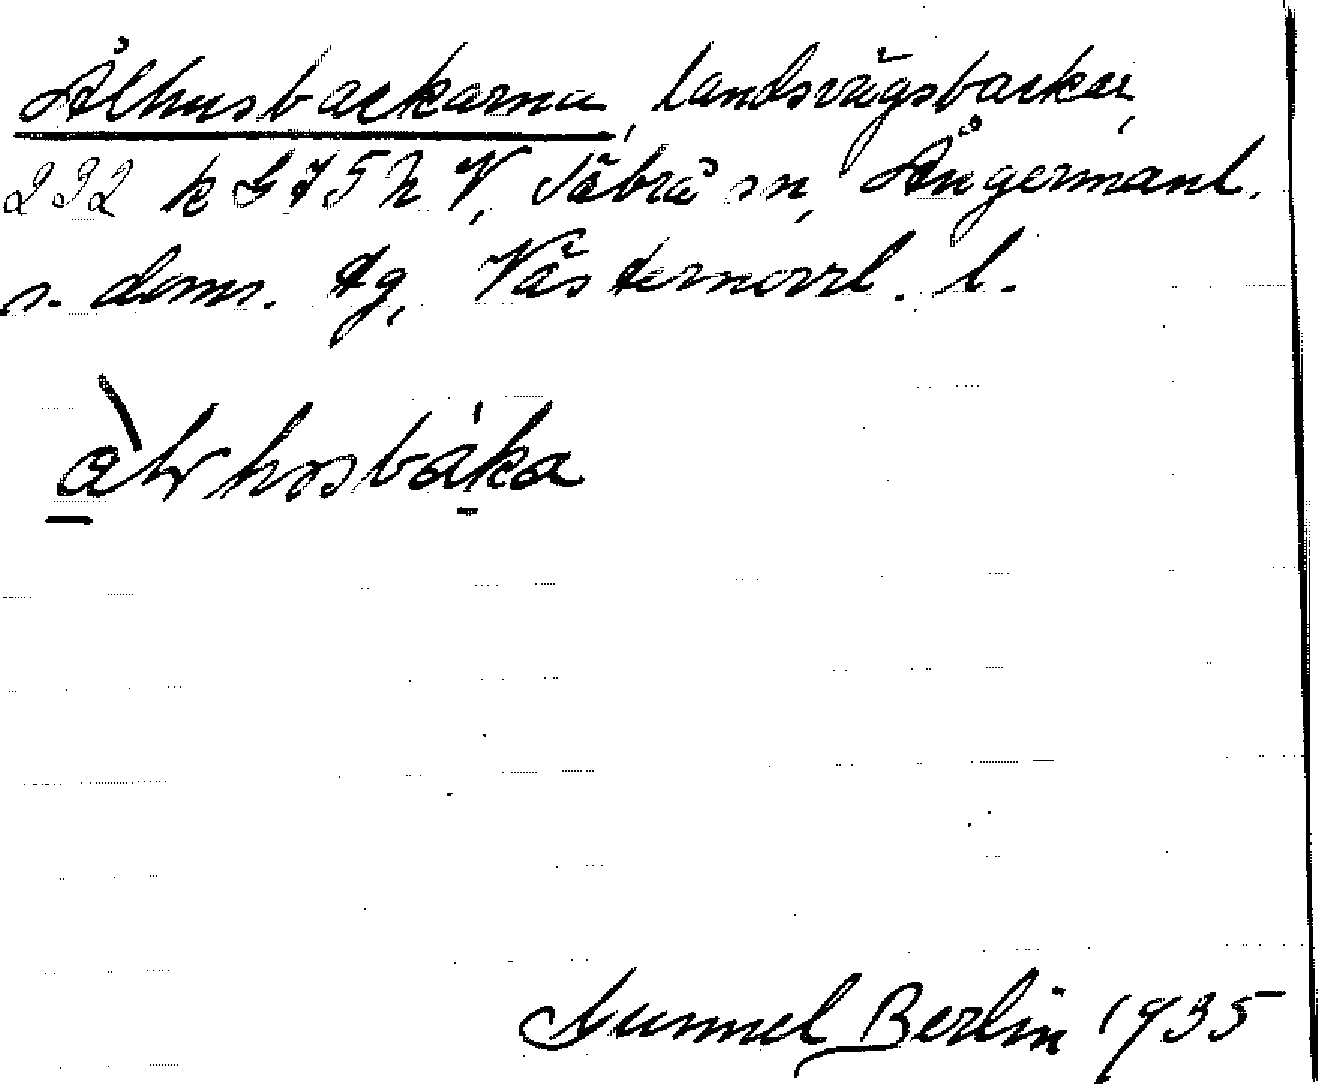 Ålhusbackarna, landsvägsbackar,
232 k G 7 5 h V, Säbrå sn, Ångermanl.
s. doms. tg, Västernorrl. l.
Gunnel Berlin 1935